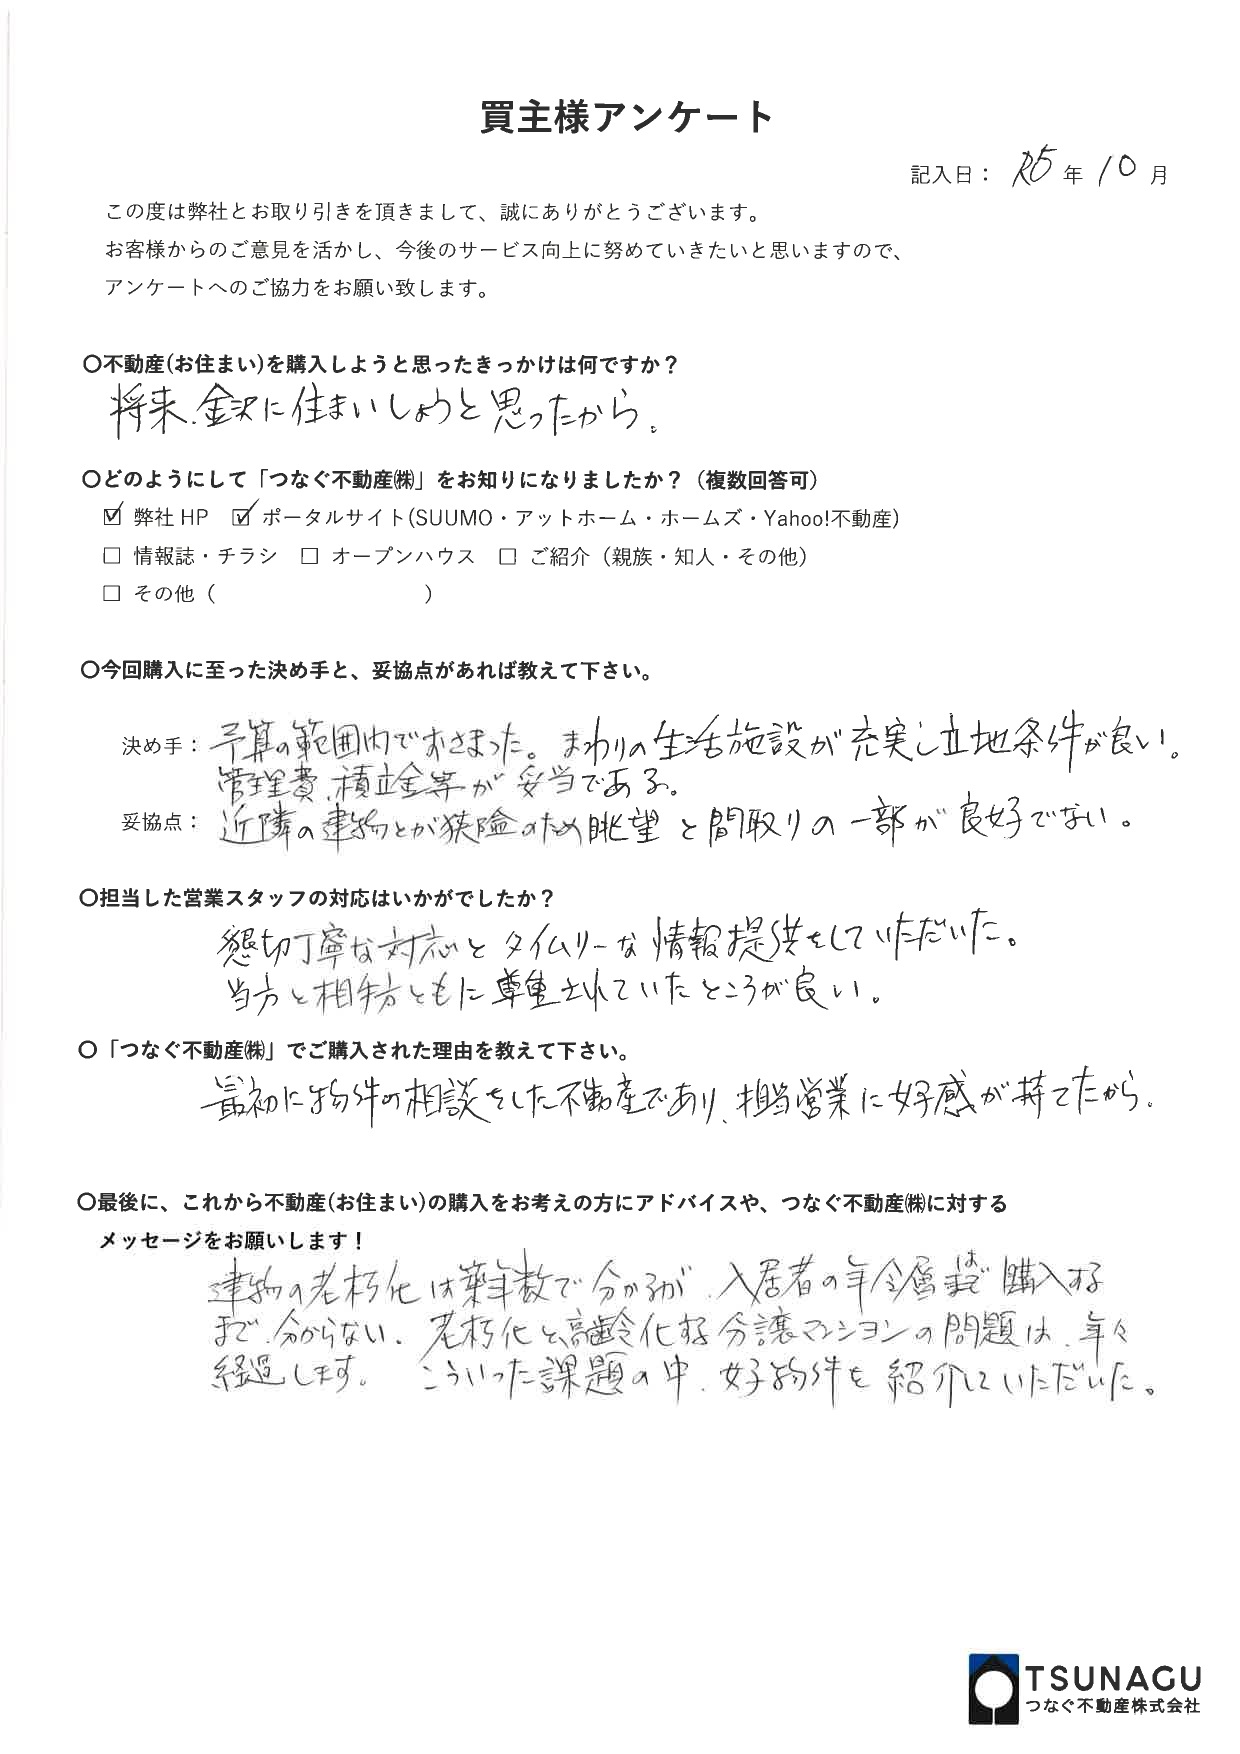 買主様アンケート
記入日： R5年 10月
この度は弊社とお取り引きを頂きまして、誠にありがとうございます。
お客様からのご意見を活かし、今後のサービス向上に努めていきたいと思いますので、
アンケートへのご協力をお願い致します。
〇不動産(お住まい)を購入しようと思ったきっかけは何ですか？
将来、金沢に住まいしようと思ったから。
〇どのようにして「つなぐ不動産㈱」をお知りになりましたか？（複数回答可）
☑ 弊社HP ☑ ポータルサイト(SUUMO・アットホーム・ホームズ・Yahoo!不動産)
□ 情報誌・チラシ □ オープンハウス □ ご紹介（親族・知人・その他）
□ その他（ ）
〇今回購入に至った決め手と、妥協点があれば教えて下さい。
決め手： 予算の範囲内でおさまった。まわりの生活施設が充実し立地条件が良い。
管理費、積立金等が妥当である。
妥協点： 近隣の建物とが狭隘のため眺望と間取りの一部が良好でない。
〇担当した営業スタッフの対応はいかがでしたか？
懇切丁寧な対応とタイムリーな情報提供をしていただいた。
当方と相手方ともに尊重されていたところが良い。
〇「つなぐ不動産㈱」でご購入された理由を教えて下さい。
最初に物件の相談をした不動産であり、担当営業に好感が持てたから。
〇最後に、これから不動産(お住まい)の購入をお考えの方にアドバイスや、つなぐ不動産㈱に対する
メッセージをお願いします！
建物の老朽化は築年数で分かるが、入居者の年令層は購入する
まで、分からない。老朽化と、高齢化する分譲マンションの問題は、年々
経過します。こういった課題の中、好物件を紹介していただいた。
TSUNAGU
つなぐ不動産株式会社